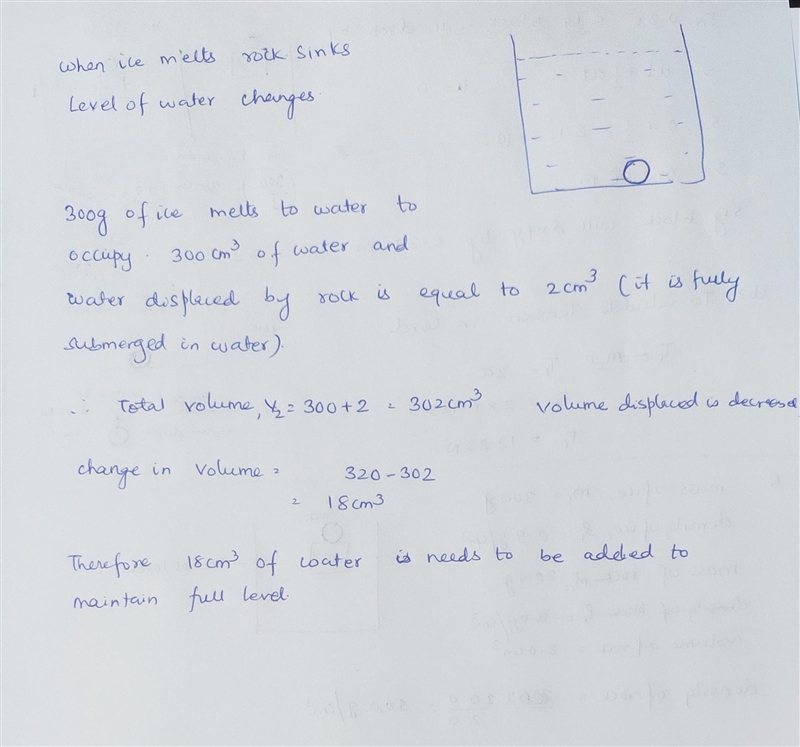 When ice melts rock sinks
Level of water changes.
300g of ice melts to water to
occupy. 300 cm³ of water and
water displaced by rock is equal to 2cm³ (it is fully
submerged in water).
∴ Total volume, V₂ = 300 + 2 = 302cm³ volume displaced is decrease
change in volume = 320 - 302
= 18cm³
Therefore 18cm³ of water needs to be added to
maintain full level.